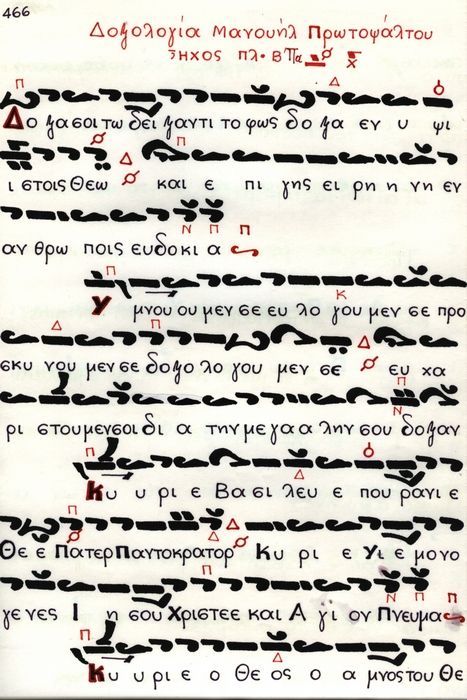 466
Δοξολογία Μανουήλ Πρωτοψάλτου
Ἦχος πλ. Β Πα
Δο ξα σοι τω δει ξαν τι το φως δο ξα εν υ ψι
ι στοις Θεω και ε πι γης ει ρη η νη εν
αν θρω ποις ευ δο κι α
Υ μνου ου μεν σε ευ λο γου μεν σε προ
σκυ νου μεν σε δο ξο λο γου μεν σε ευ χα
ρι στου μεν σοι δι α την με γα α λην σου δο ξαν
Κυ υ ρι ε Βα σι λευ ε που ρα νι ε
Θε ε Πατερ Παντοκρατορ Κυ ρι ε Υι ε μο νο
γε νες Ι η σου Χριστε ε και Α γι ον Πνευμα
Κυ υ ρι ε ο Θε ος ο α μνος του Θε